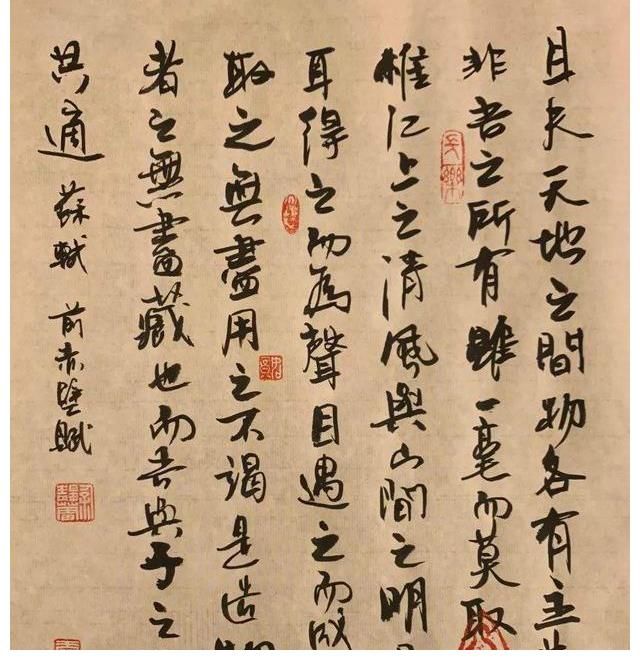 且夫天地之間物各有主
非吾之所有雖一毫而莫取
惟江上之清風與山間之明
耳得之而為聲目遇之而成
取之無盡用之不竭是造
者之無盡藏也而吾與子之
共適 蘇軾 前赤壁賦